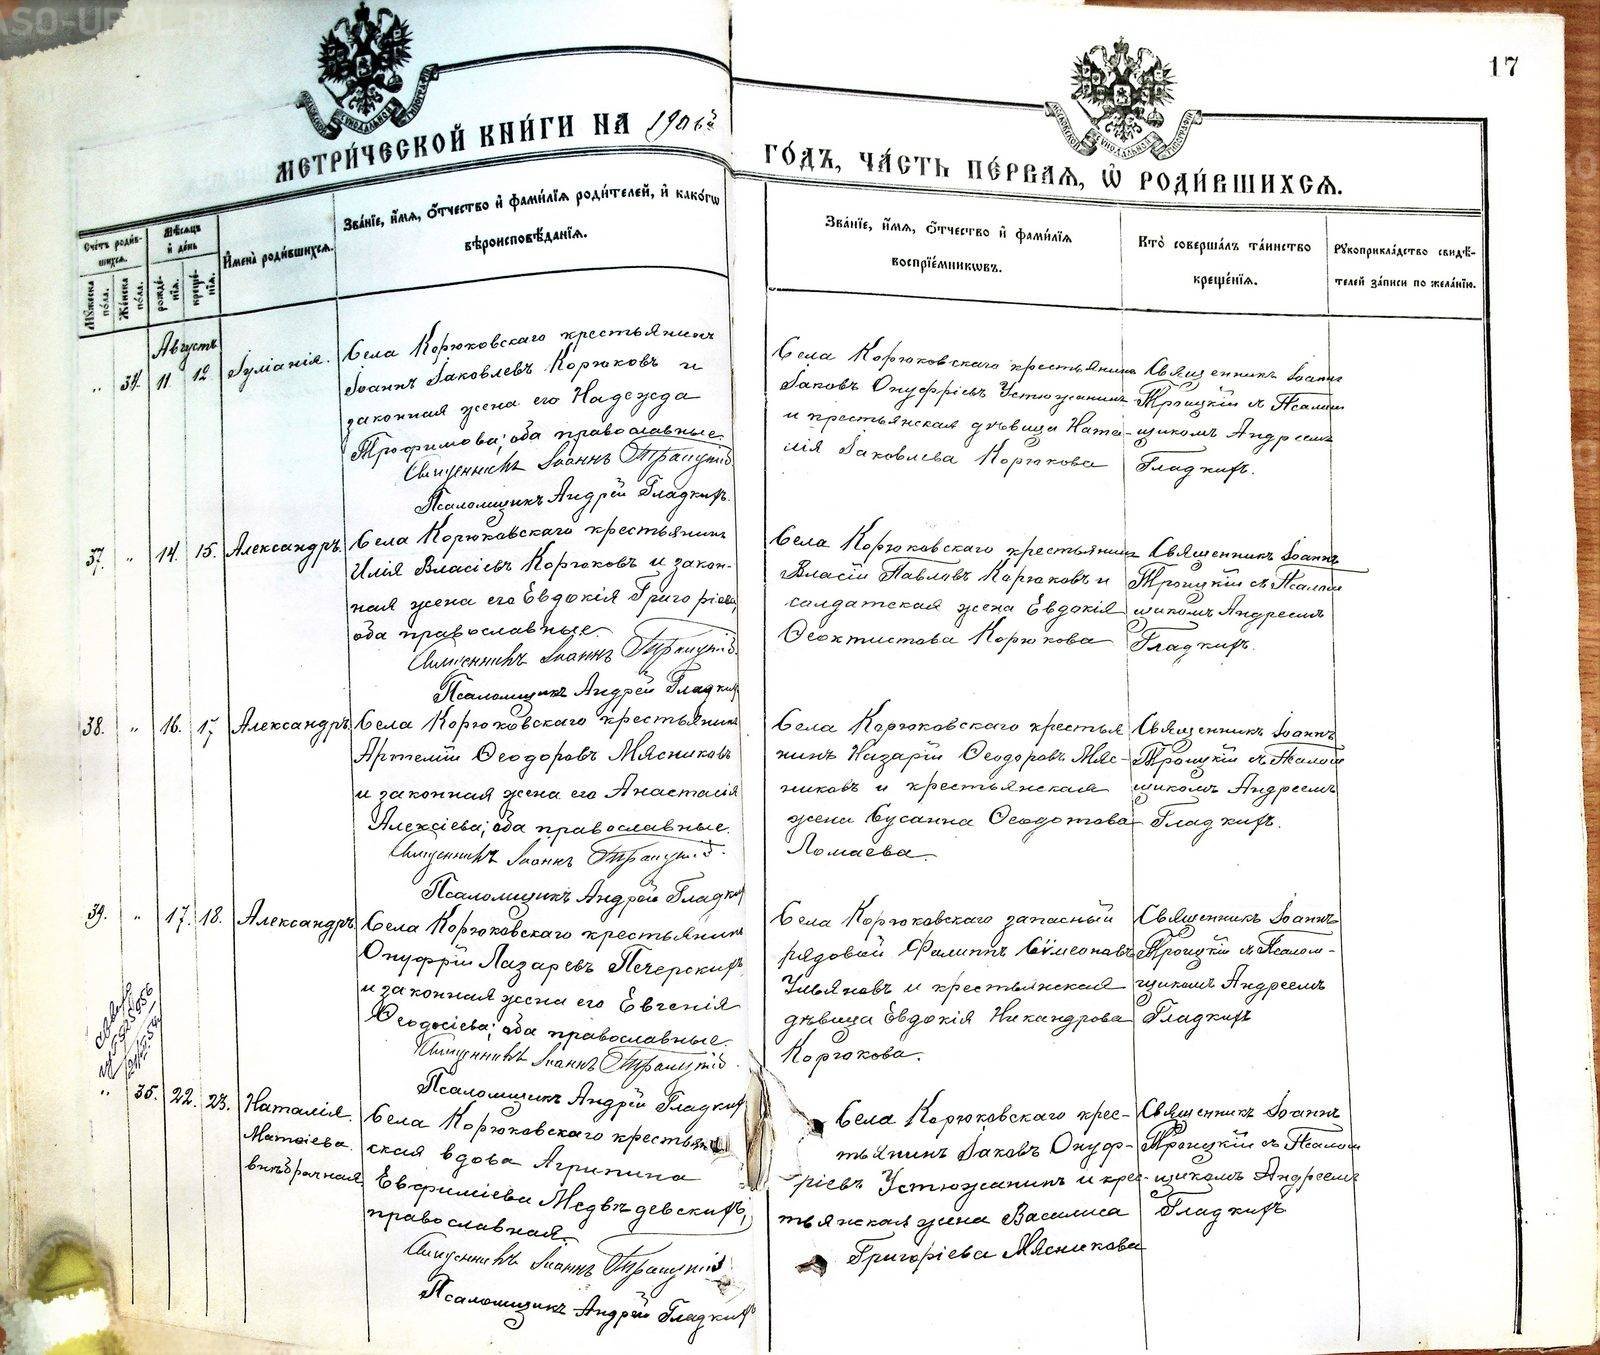 17
МЕТРИ́ЧЕСКОЙ КНИ́ГИ НА 1906й
ГО́ДЪ, ЧА́СТЬ ПЕ́РВАЯ, Ѡ҆ РОДИ́ВШИХСЯ.
Сче́тъ роди́вшихся.
Му́жеска по́ла.
Же́нска по́ла.
Мѣ́сяцъ и҆ де́нь
рожде́нїя.
креще́нїя.
И҆мена̀ роди́вшихся.
Зва́нїе, и҆́мя, ѻ҆́тчество и҆ фами́лїя роди́телей, и҆ како́гѡ
вѣроисповѣ́данїя.
Зва́нїе, и҆́мя, ѻ҆́тчество и҆ фами́лїя
воспрїе́мникѡвъ.
Кто̀ соверша́лъ та́инство
креще́нїя.
Рукоприкла́дство свидѣ́-
телей за́писи по жела́нїю.
Августъ
„ 34. 11. 12. Іуліанія.
Села Корюковскаго крестьянинъ
Іоаннъ Іаковлевъ Корюковъ и
законная жена его Надежда
Трофимова; оба православные.
Священникъ Іоаннъ Троицкій
Псаломщикъ Андрей Гладкихъ.
Села Корюковскаго крестьянинъ
Іаковъ Онуфріевъ Устюжанинъ
и крестьянская дѣвица Ната-
лія Іаковлева Корюкова
Священникъ Іоаннъ
Троицкій съ Псалом
щикомъ Андреемъ
Гладкихъ.
37. „ 14. 15. Александръ.
Села Корюковскаго крестьянинъ
Илія Власіевъ Корюковъ и закон-
ная жена его Евдокія Григоріева,
оба православные.
Священникъ Іоаннъ Троицкій.
Псаломщикъ Андрей Гладкихъ
Села Корюковскаго крестьянинъ
Власій Павловъ Корюковъ и
солдатская жена Евдокія
Ѳеоктистова Корюкова
Священникъ Іоаннъ
Троицкій съ Псалом
щикомъ Андреемъ
Гладкихъ.
38. „ 16. 17 Александръ
Села Корюковскаго крестьянинъ
Артемій Ѳеодоровъ Мясниковъ
и законная жена его Анастасія
Алексіева; оба православные.
Священникъ Іоаннъ Троицкій.
Псаломщикъ Андрей Гладкихъ
Села Корюковскаго крестья
нинъ Назарій Ѳеодоровъ Мяс-
никовъ и крестьянская
жена Сусанна Ѳеодотова
Ломаева.
Священникъ Іоаннъ
Троицкій съ Псалом
щикомъ Андреемъ
Гладкихъ.
39. „ 17. 18. Александръ
Села Корюковскаго крестьянинъ
Онуфрій Лазаревъ Печерскихъ
и законная жена его Евгенія
Ѳеодосіева; оба православные.
Священникъ Іоаннъ Троицкій.
Псаломщикъ Андрей Гладкихъ
Села Корюковскаго запасный
рядовой Филиппъ Сѵмеоновъ
Ульяновъ и крестьянская
дѣвица Евдокія Никандрова
Корюкова.
Священникъ Іоаннъ
Троицкій съ Псалом-
щикомъ Андреемъ
Гладкихъ
„ 35. 22. 23. Наталія.
Матѳіева
внѣбрачная.
Села Корюковскаго крестьян
ская вдова Агрипина
Евѳиміева Медвѣдевскихъ,
православная.
Священникъ Іоаннъ Троицкій
Псаломщикъ Андрей Гладкихъ
Села Корюковскаго крес-
тьянинъ Іаковъ Онуф-
ріевъ Устюжанинъ и крес-
тьянская жена Василиса
Григоріева Мясникова
Священникъ Іоаннъ
Троицкій съ Псалом
щикомъ Андреемъ
Гладкихъ